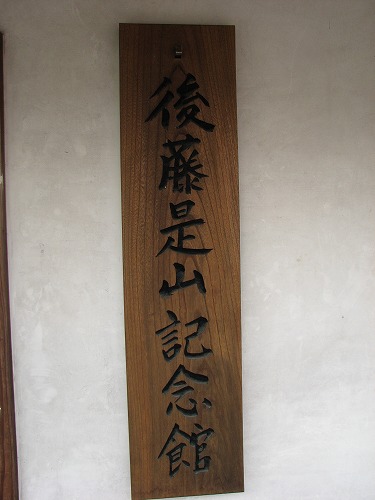 後藤是山記念館